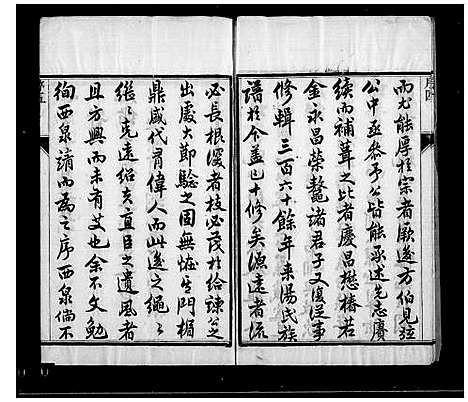 而尤能厚於宗者厥後方伯見弦
公中丞參予公皆能承述先志賡
續而補葺之比者慶昌懋椿若
金永昌榮鼇諸君子又復從事
修輯三百六十餘年來湯氏族
譜於今蓋已十修矣源遠者流
必長根深者枝必茂於給諫公
出處大節驗之固無怪生門楣
鼎盛代育偉人而此後之繩之
繼之克遠紹夫直臣之遺風者
且方興而未有艾也余不文勉
徇西泉請而為之序西泉倘不